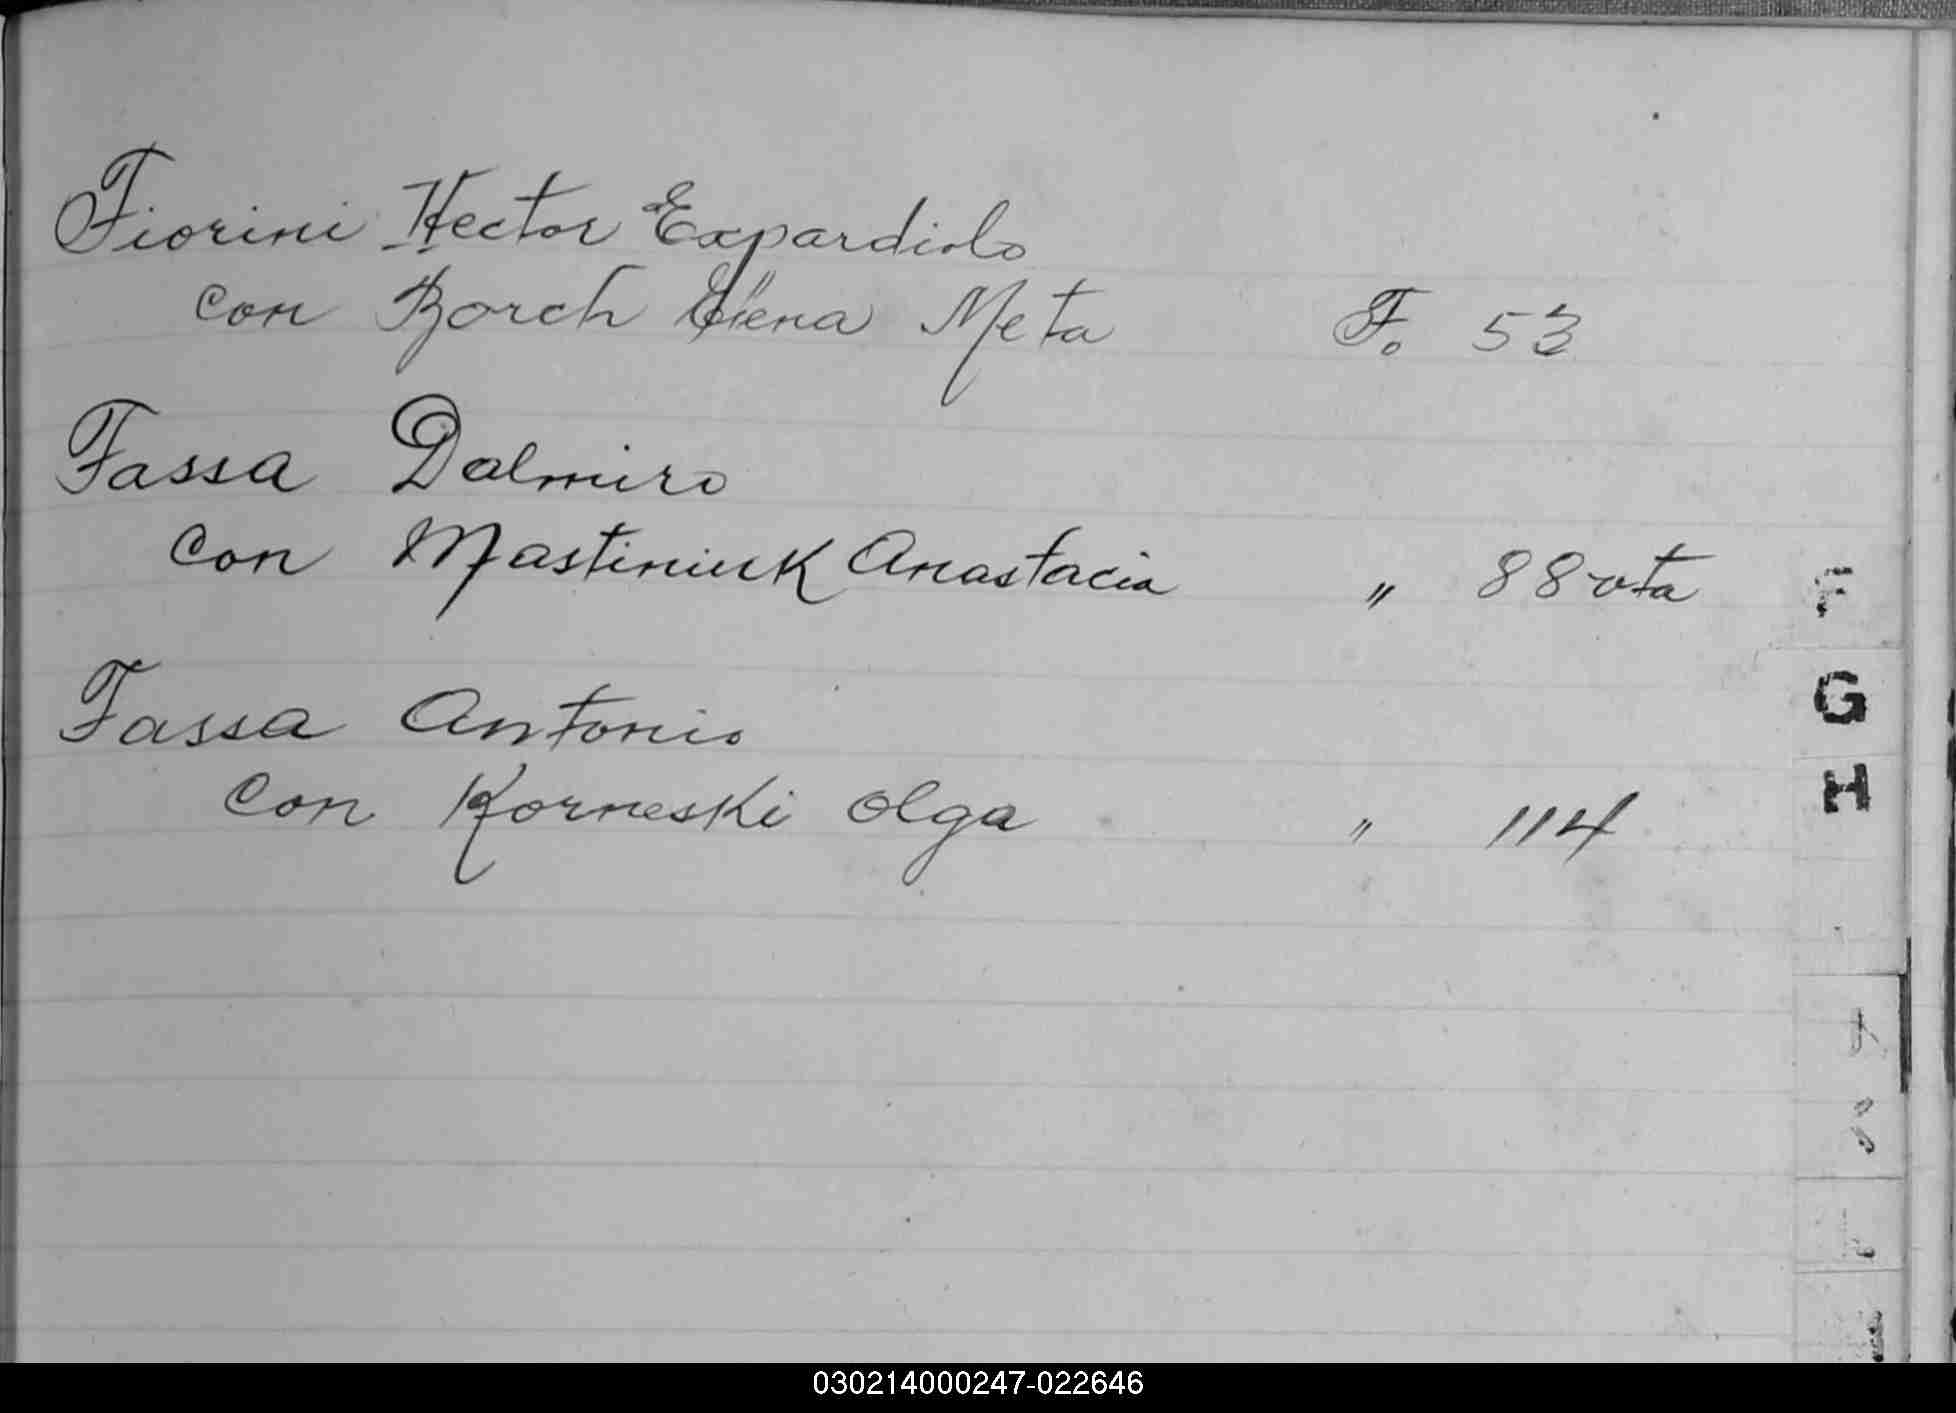 Fiorini Hector Expardiolo
con Borch Elena Meta F. 53
Fassa Dalmiro
con Mastiniuk Anastacia " 88 vta
Fassa Antonio
con Korneski Olga " 114
F
G
H
030214000247-022646